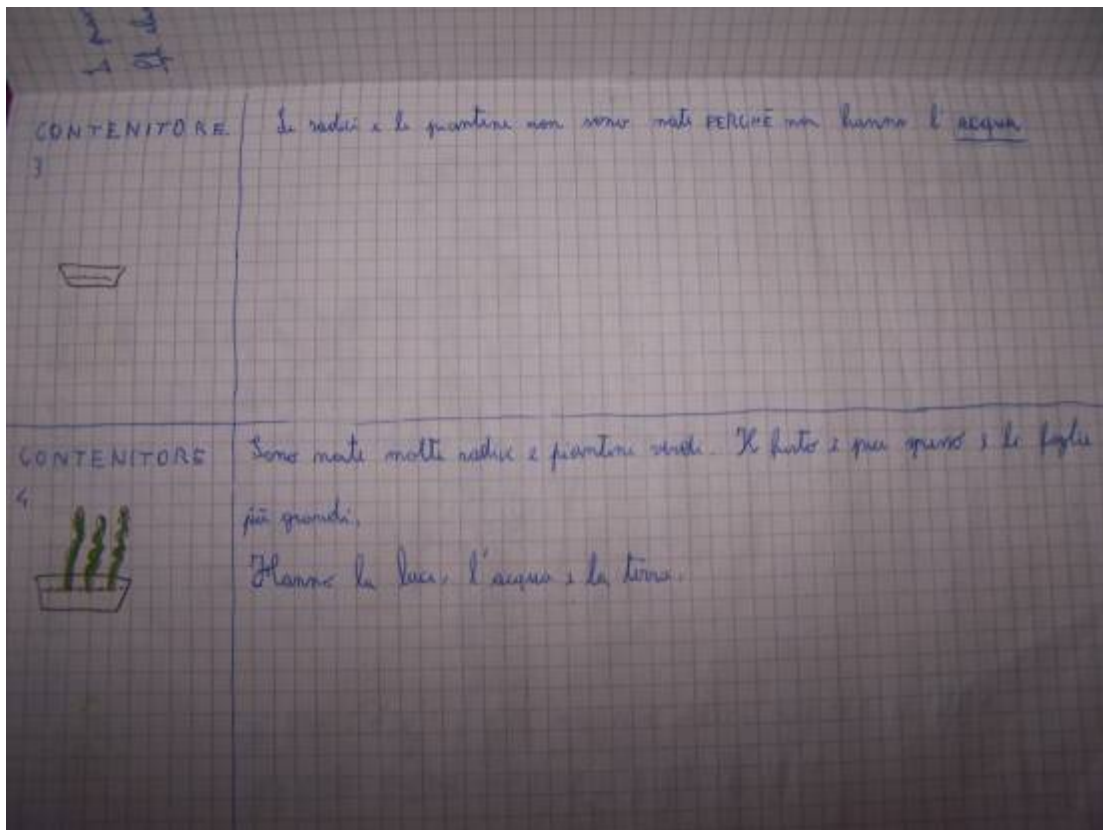 CONTENITORE
3
Le radici e le piantine non sono nate PERCHÈ non hanno l'acqua
CONTENITORE
4
Sono nate molte radici e piantine verdi. Il fusto è più spesso e le foglie
più grandi.
Hanno la luce, l'acqua e la terra.